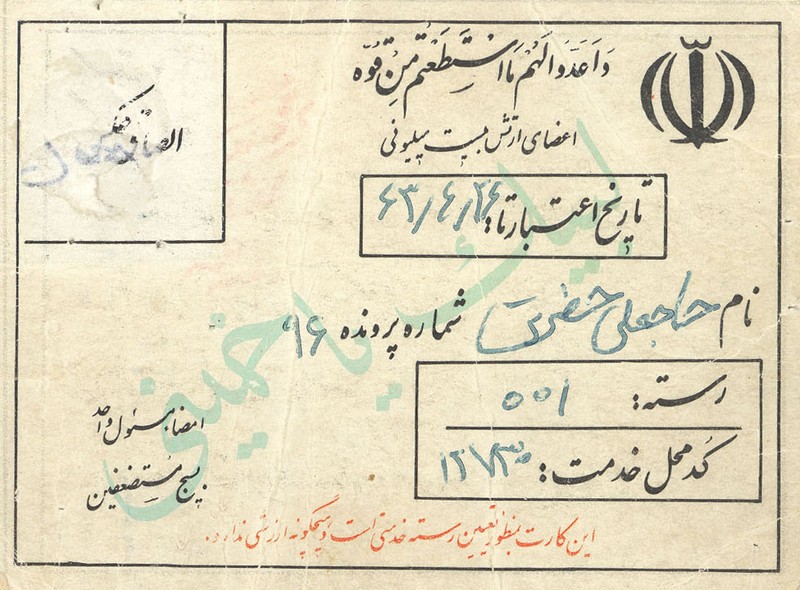 وَاَعِدّوُا لَهُمْ مَا اسْتَطَعْتُمْ مِنْ قُوَّه
اعضای ارتش بیست میلیونی
تاریخ اعتبار تا: ۶۳/۴/۲۴
نام حاجعلی شماره پرونده ۹۶
رسته: ۵۵۱
کُد محل خدمت: ۱۲۷۳۰
الصاق عکس
امضاء مسئول واحد
بسیج مستضعفین
لبیک یا خمینی
این کارت بمنظور تعیین رسته خدمتی است و هیچگونه ارزشی ندارد.